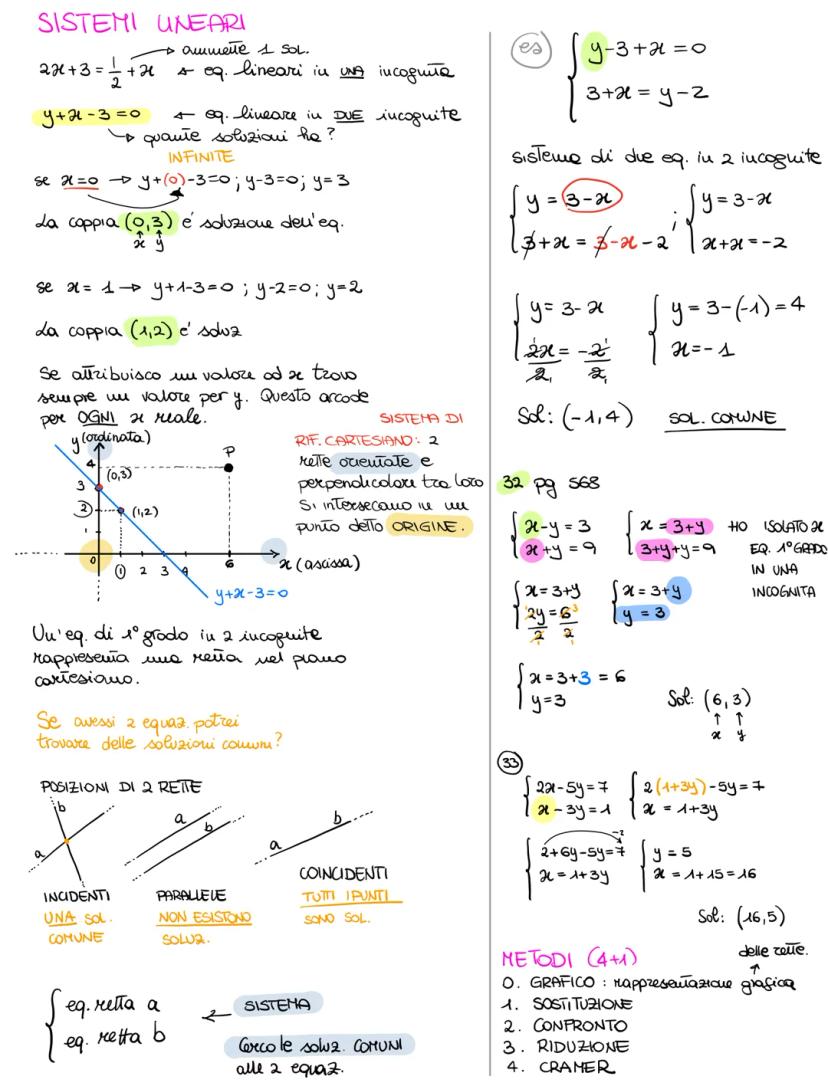 SISTEMI LINEARI
ammette 1 sol.
2x+3 = 1/2 + x ← eq. lineari in UNA incognita
y+x-3=0 ← eq. lineare in DUE incognite
quante soluzioni ha?
INFINITE
se x=0 → y+(0)-3=0; y-3=0; y=3
La coppia (0,3) é soluzione dell'eq.
x y
se x= 1 → y+1-3=0 ; y-2=0; y=2
La coppia (1,2) é soluz
Se attribuisco un valore ad x trovo
sempre un valore per y. Questo accade
per OGNI x reale.
y (ordinata)
4
3
2
1
0
(0,3)
(1,2)
P
1 2 3 4 6
x (ascissa)
y+x-3=0
SISTEMA DI
RIF. CARTESIANO: 2
rette orientate e
perpendicolari tra loro
Si intersecano in un
punto detto ORIGINE.
Un'eq. di 1° grado in 2 incognite
rappresenta una retta nel piano
cartesiano.
Se avessi 2 equaz. potrei
trovare delle soluzioni comuni?
POSIZIONI DI 2 RETTE
b
a
a
b
a
b
INCIDENTI
UNA SOL.
COMUNE
PARALLELE
NON ESISTONO
SOLUZ.
COINCIDENTI
TUTTI I PUNTI
SONO SOL.
{ eq. retta a
eq. retta b
← SISTEMA
Cerco le soluz. COMUNI
alle 2 equaz.
es { y-3+x=0
3+x = y-2
sistema di due eq. in 2 incognite
{ y = 3-x ; { y = 3-x
3+x = 3-x-2 x+x = -2
{ y = 3-x { y = 3-(-1) = 4
2x/2 = -2/2 x = -1
Sol: (-1,4) SOL. COMUNE
32 pg 568
{ x-y = 3 { x = 3+y HO ISOLATO x
x+y = 9 3+y+y=9 EQ. 1° GRADO
IN UNA
INCOGNITA
{ x = 3+y { x = 3+y
1 2y/2 = 6/2 3 y = 3
{ x = 3+3 = 6
y = 3
Sol: (6,3)
x y
33
{ 2x-5y=7 { 2(1+3y)-5y=7
x-3y=1 x = 1+3y
-2
{ 2+6y-5y=7 { y = 5
x = 1+3y x = 1+15=16
Sol: (16,5)
METODI (4+1)
delle rette.
0. GRAFICO : rappresentazione grafica
1. SOSTITUZIONE
2. CONFRONTO
3. RIDUZIONE
4. CRAMER